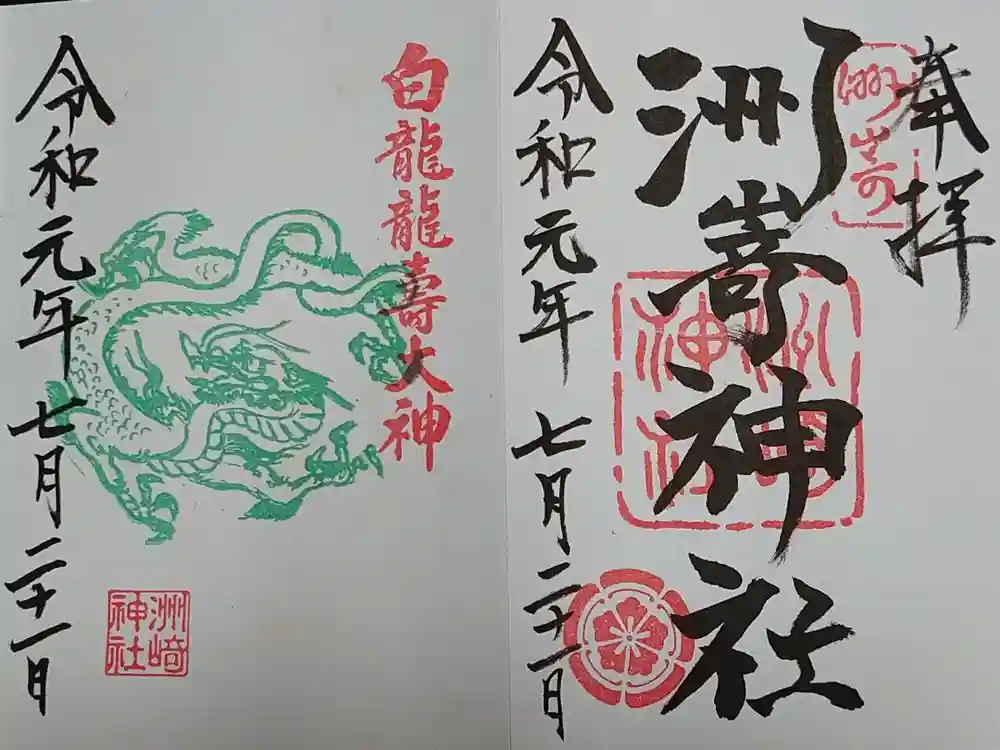 奉拝
洲嵜
洲嵜神社
令和元年 七月二十一日
白龍龍壽大神
令和元年 七月二十一日
洲崎
神社